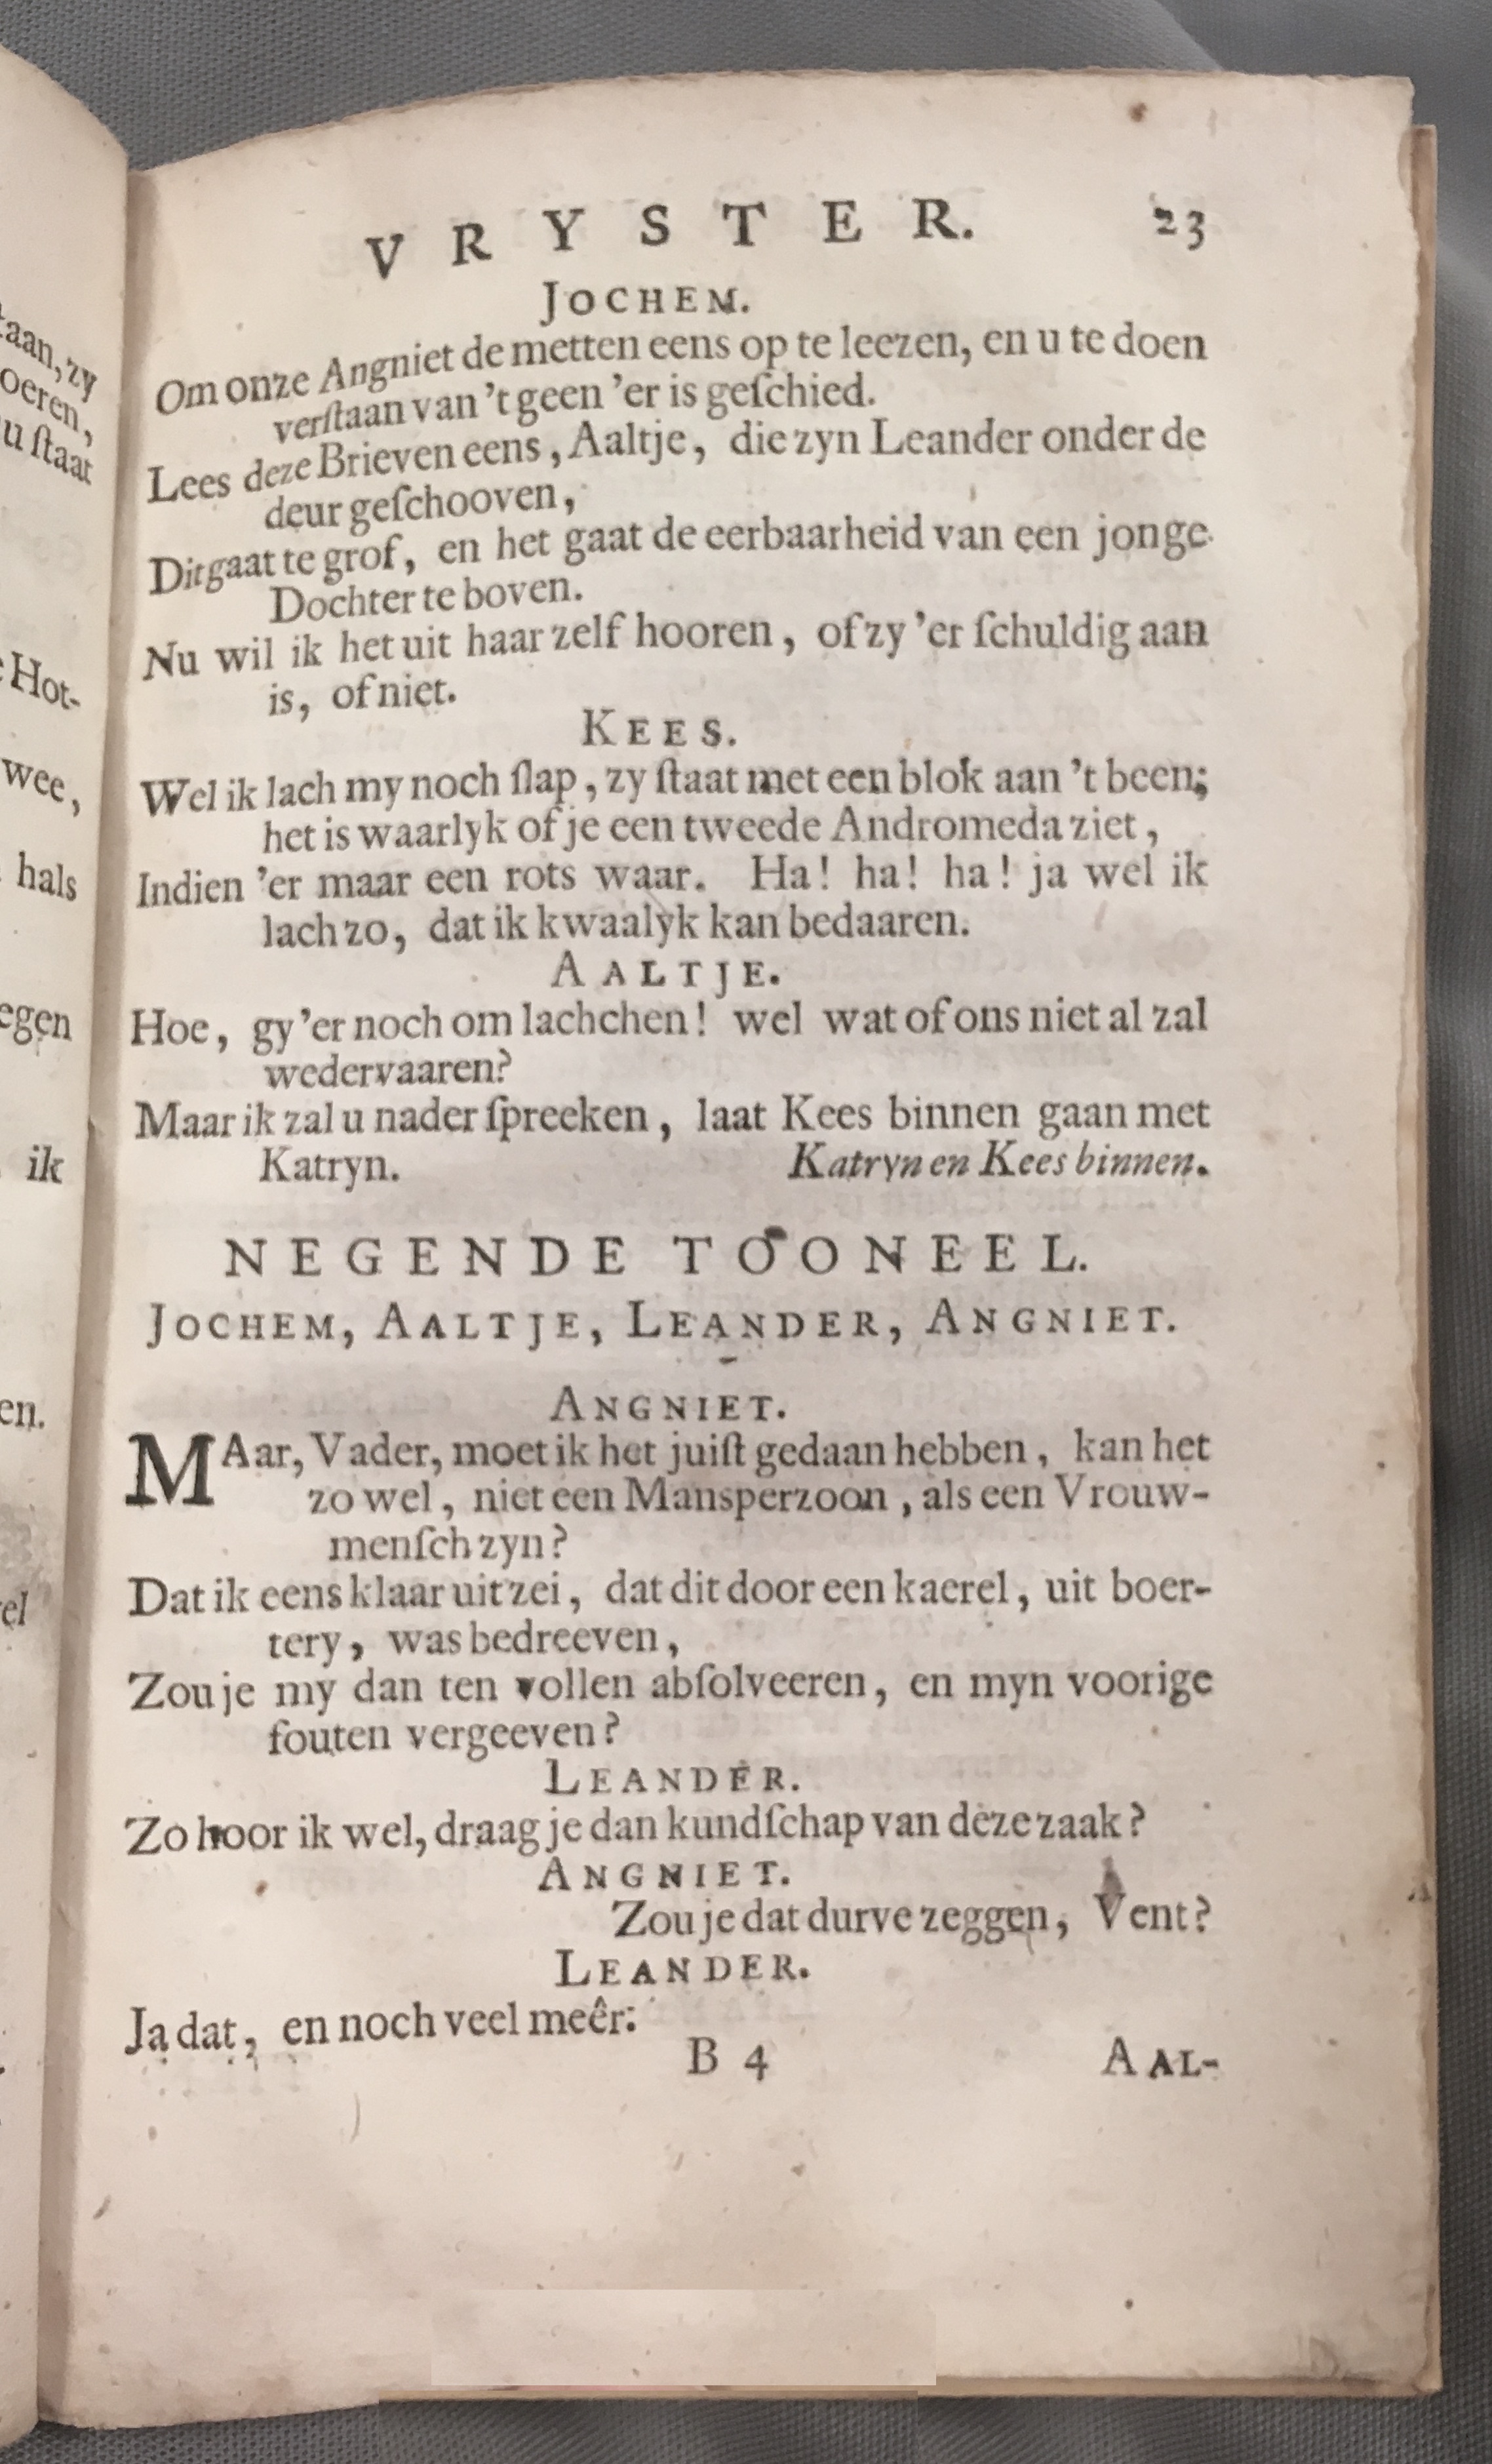 VRYSTER. 23
JOCHEM.
Om onze Angniet de metten eens op te leezen, en u te doen
verſtaan van 't geen 'er is geſchied.
Lees deze Brieven eens, Aaltje, die zyn Leander onder de
deur geſchooven,
Dit gaat te grof, en het gaat de eerbaarheid van een jonge
Dochter te boven.
Nu wil ik het uit haar zelf hooren, of zy 'er ſchuldig aan
is, of niet.
KEES.
Wel ik lach my noch ſlap, zy ſtaat met een blok aan 't been;
het is waarlyk of je een tweede Andromeda ziet,
Indien 'er maar een rots waar. Ha! ha! ha! ja wel ik
lach zo, dat ik kwaalyk kan bedaaren.
AALTJE.
Hoe, gy 'er noch om lachchen! wel wat of ons niet al zal
wedervaaren?
Maar ik zal u nader ſpreeken, laat Kees binnen gaan met
Katryn. Katryn en Kees binnen.
NEGENDE TOONEEL.
JOCHEM, AALTJE, LEANDER, ANGNIET.
ANGNIET.
MAar, Vader, moet ik het juiſt gedaan hebben, kan het
zo wel, niet een Mansperzoon, als een Vrouw-
menſch zyn?
Dat ik eens klaar uit zei, dat dit door een kaerel, uit boer-
tery, was bedreeven,
Zou je my dan ten vollen abſolveeren, en myn voorige
fouten vergeeven?
LEANDER.
Zo hoor ik wel, draag je dan kundſchap van deze zaak?
ANGNIET.
Zou je dat durve zeggen, Vent?
LEANDER.
Ja dat, en noch veel meêr:
B 4 AAL-
taan, zy
oeren,
u ſtaat
Hot-
wee,
hals
egen
ik
en.
el